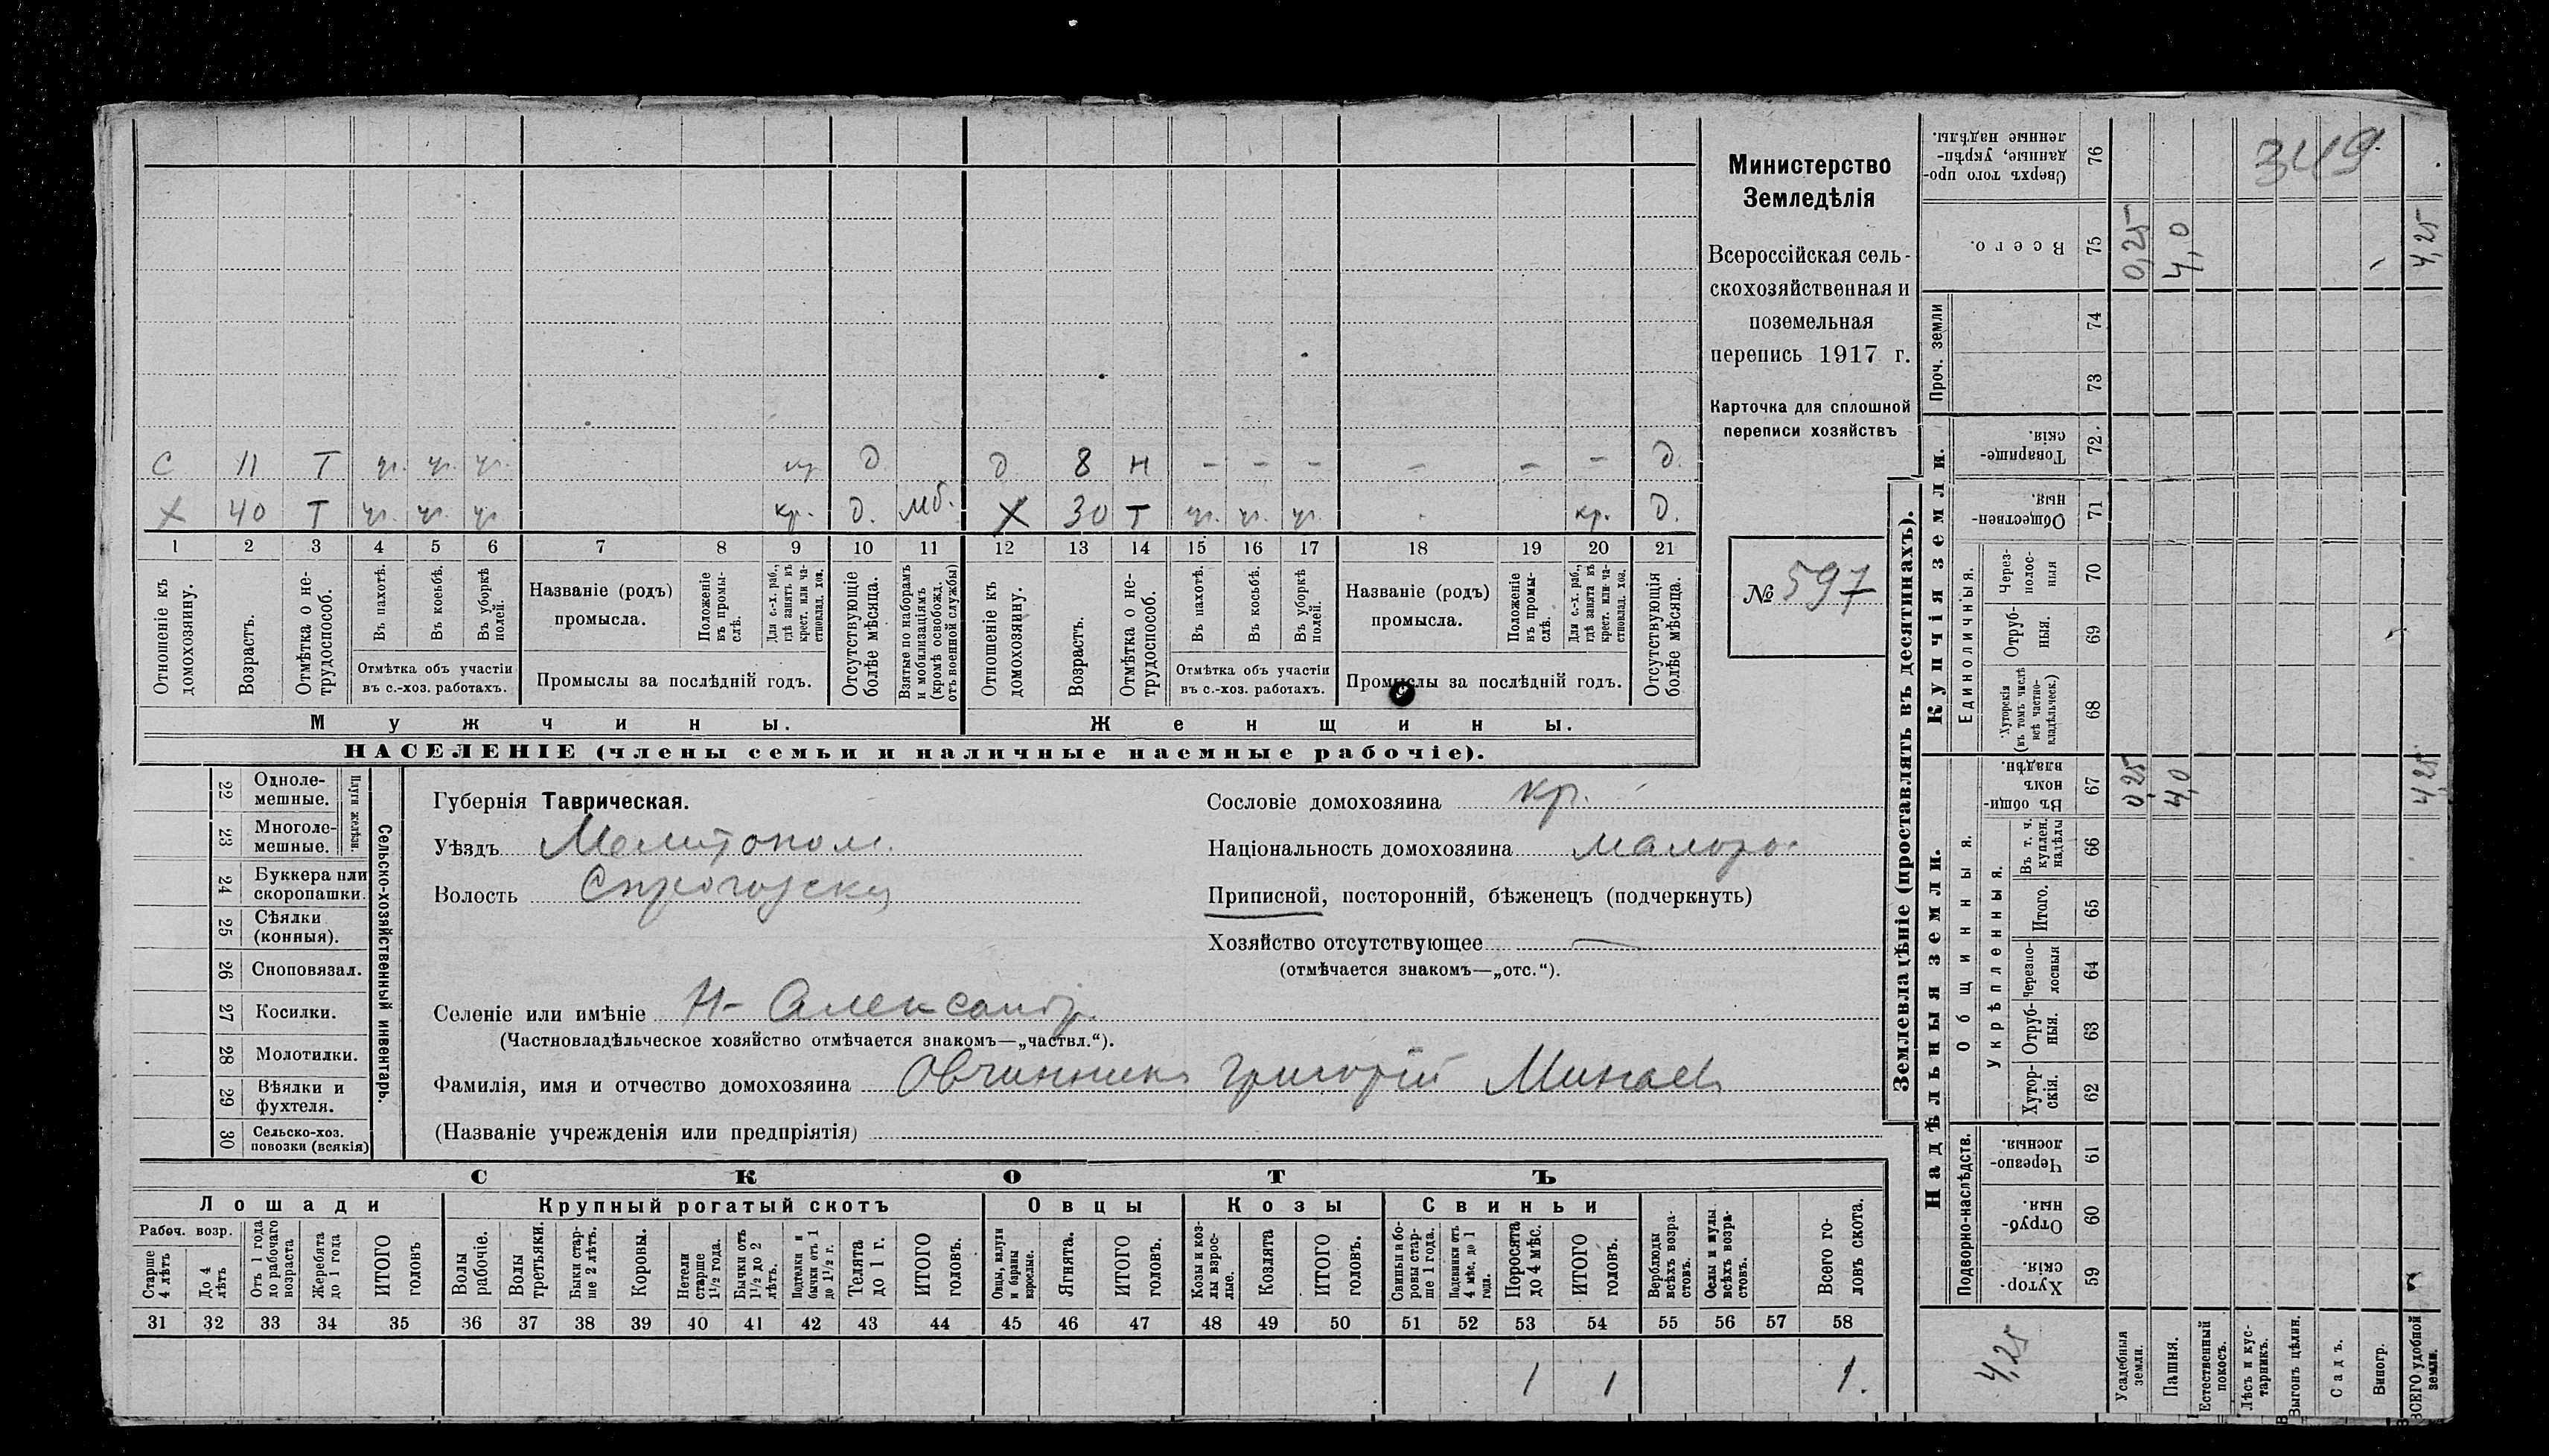 349
Министерство
Земледѣлія
Всероссійская сель-
скохозяйственная и
поземельная
перепись 1917 г.
Карточка для сплошной
переписи хозяйствъ
№ 597
С 11 Т уч. уч. уч. д. д 8 н – – – – – – д.
Х 40 Т уч. уч. уч кр. д. мб. Х 30 Т уч. уч. уч. кр. д.
1 2 3 4 5 6 7 8 9 10 11 12 13 14 15 16 17 18 19 20 21
Отношеніе къ домохозяину.
Возрастъ.
Отмѣтка о не-трудоспособ.
Въ пахотѣ.
Въ косьбѣ.
Въ уборкѣ полей.
Отмѣтка объ участіи
въ с.-хоз. работахъ.
Названіе (родъ)
промысла.
Положеніе въ промы-слѣ.
Для с.-х. раб., гдѣ занятъ въ крест. или ча-стновлад. хоз.
Промыслы за послѣдній годъ.
Отсутствующіе болѣе мѣсяца.
Взятые по наборамъ и мобилизаціямъ (кромѣ освобожд. отъ военной службы)
Отношеніе къ домохозяину.
Возрастъ.
Отмѣтка о не-трудоспособ.
Въ пахотѣ.
Въ косьбѣ.
Въ уборкѣ полей.
Отмѣтка объ участіи
въ с.-хоз. работахъ.
Названіе (родъ)
промысла.
Положеніе въ промы-слѣ.
Для с.-х. раб., гдѣ занята въ крест. или ча-стновлад. хоз.
Промыслы за послѣдній годъ.
Отсутствующія болѣе мѣсяца.
Мужчины.
Женщины.
НАСЕЛЕНІЕ (члены семьи и наличные наемные рабочіе).
Сельско-хозяйственный инвентарь.
Плуги желѣзн.
22 Одноле-мешные.
23 Многоле-мешные.
24 Буккера или скоропашки.
25 Сѣялки (конныя).
26 Сноповязал.
27 Косилки.
28 Молотилки.
29 Вѣялки и фухтеля.
30 Сельско-хоз. повозки (всякія)
Губернія Таврическая.
Уѣздъ Мелитопол.
Волость
Селеніе или имѣніе Н-Александр.
(Частновладѣльческое хозяйство отмѣчается знакомъ—„частвл.“).
Фамилія, имя и отчество домохозяина Овчинник Григорій Минаев
(Названіе учрежденія или предпріятія)
Сословіе домохозяина кр.
Національность домохозяина малорос
Приписной, посторонній, бѣженецъ (подчеркнуть)
Хозяйство отсутствующее —
(отмѣчается знакомъ—„отс.“).
СКОТЪ
Лошади
Крупный рогатый скотъ
Овцы
Козы
Свиньи
Рабоч. возр.
Старше 4 лѣтъ
До 4 лѣтъ
Отъ 1 года до рабочаго возраста
Жеребята до 1 года
ИТОГО головъ
Волы рабочіе.
Волы третьяки.
Быки стар-ше 2 лѣтъ.
Коровы.
Нетели старше 1½ года.
Бычки отъ 1½ до 2 лѣтъ.
Подтелки и бычки отъ 1 до 1½ г.
Телята до 1 г.
ИТОГО головъ.
Овцы, валухи и бараны взрослые.
Ягнята.
ИТОГО головъ.
Козы и коз-лы взрос-лые.
Козлята
ИТОГО головъ.
Свиньи и бо-ровы стар-ше 1 года.
Подсвинки отъ 4 мѣс. до 1 года.
Поросята до 4 мѣс.
ИТОГО головъ.
Верблюды всѣхъ возра-стовъ.
Ослы и мулы всѣхъ возра-стовъ.
Всего го-ловъ скота.
31 32 33 34 35 36 37 38 39 40 41 42 43 44 45 46 47 48 49 50 51 52 53 54 55 56 57 58
1 1 1.
Землевладѣніе (проставлять въ десятинахъ).
Сверхъ того про-данные, укрѣп-ленные надѣлы. 76
Всего. 75 0,25 4,0 4,25
Проч. земли
74
73
Купчія земли.
Товарище-скія. 72.
Обществен-ныя. 71
Единоличныя.
Через-полос-ныя 70
Отруб-ныя. 69
Хуторскія (въ томъ числѣ всѣ частно-владѣльческ.) 68
Надѣльныя земли.
Общинныя.
Въ общи-номъ владѣн. 67 0,25 4,0 4,25
Укрѣпленныя.
Въ т. ч. куплен. надѣлы 66
Итого. 65
Черезпо-лосныя 64
Отруб-ныя. 63
Хутор-скія. 62
Подворно-наслѣдств.
Черезпо-лосныя. 61
Отруб-ныя. 60
Хутор-скія. 59
4,25
Усадебныя земли.
Пашня.
Естественный покосъ.
Лѣсъ и кус-тарникъ.
Выгонъ цѣлин.
Садъ.
Виногр.
ВСЕГО удобной земли.